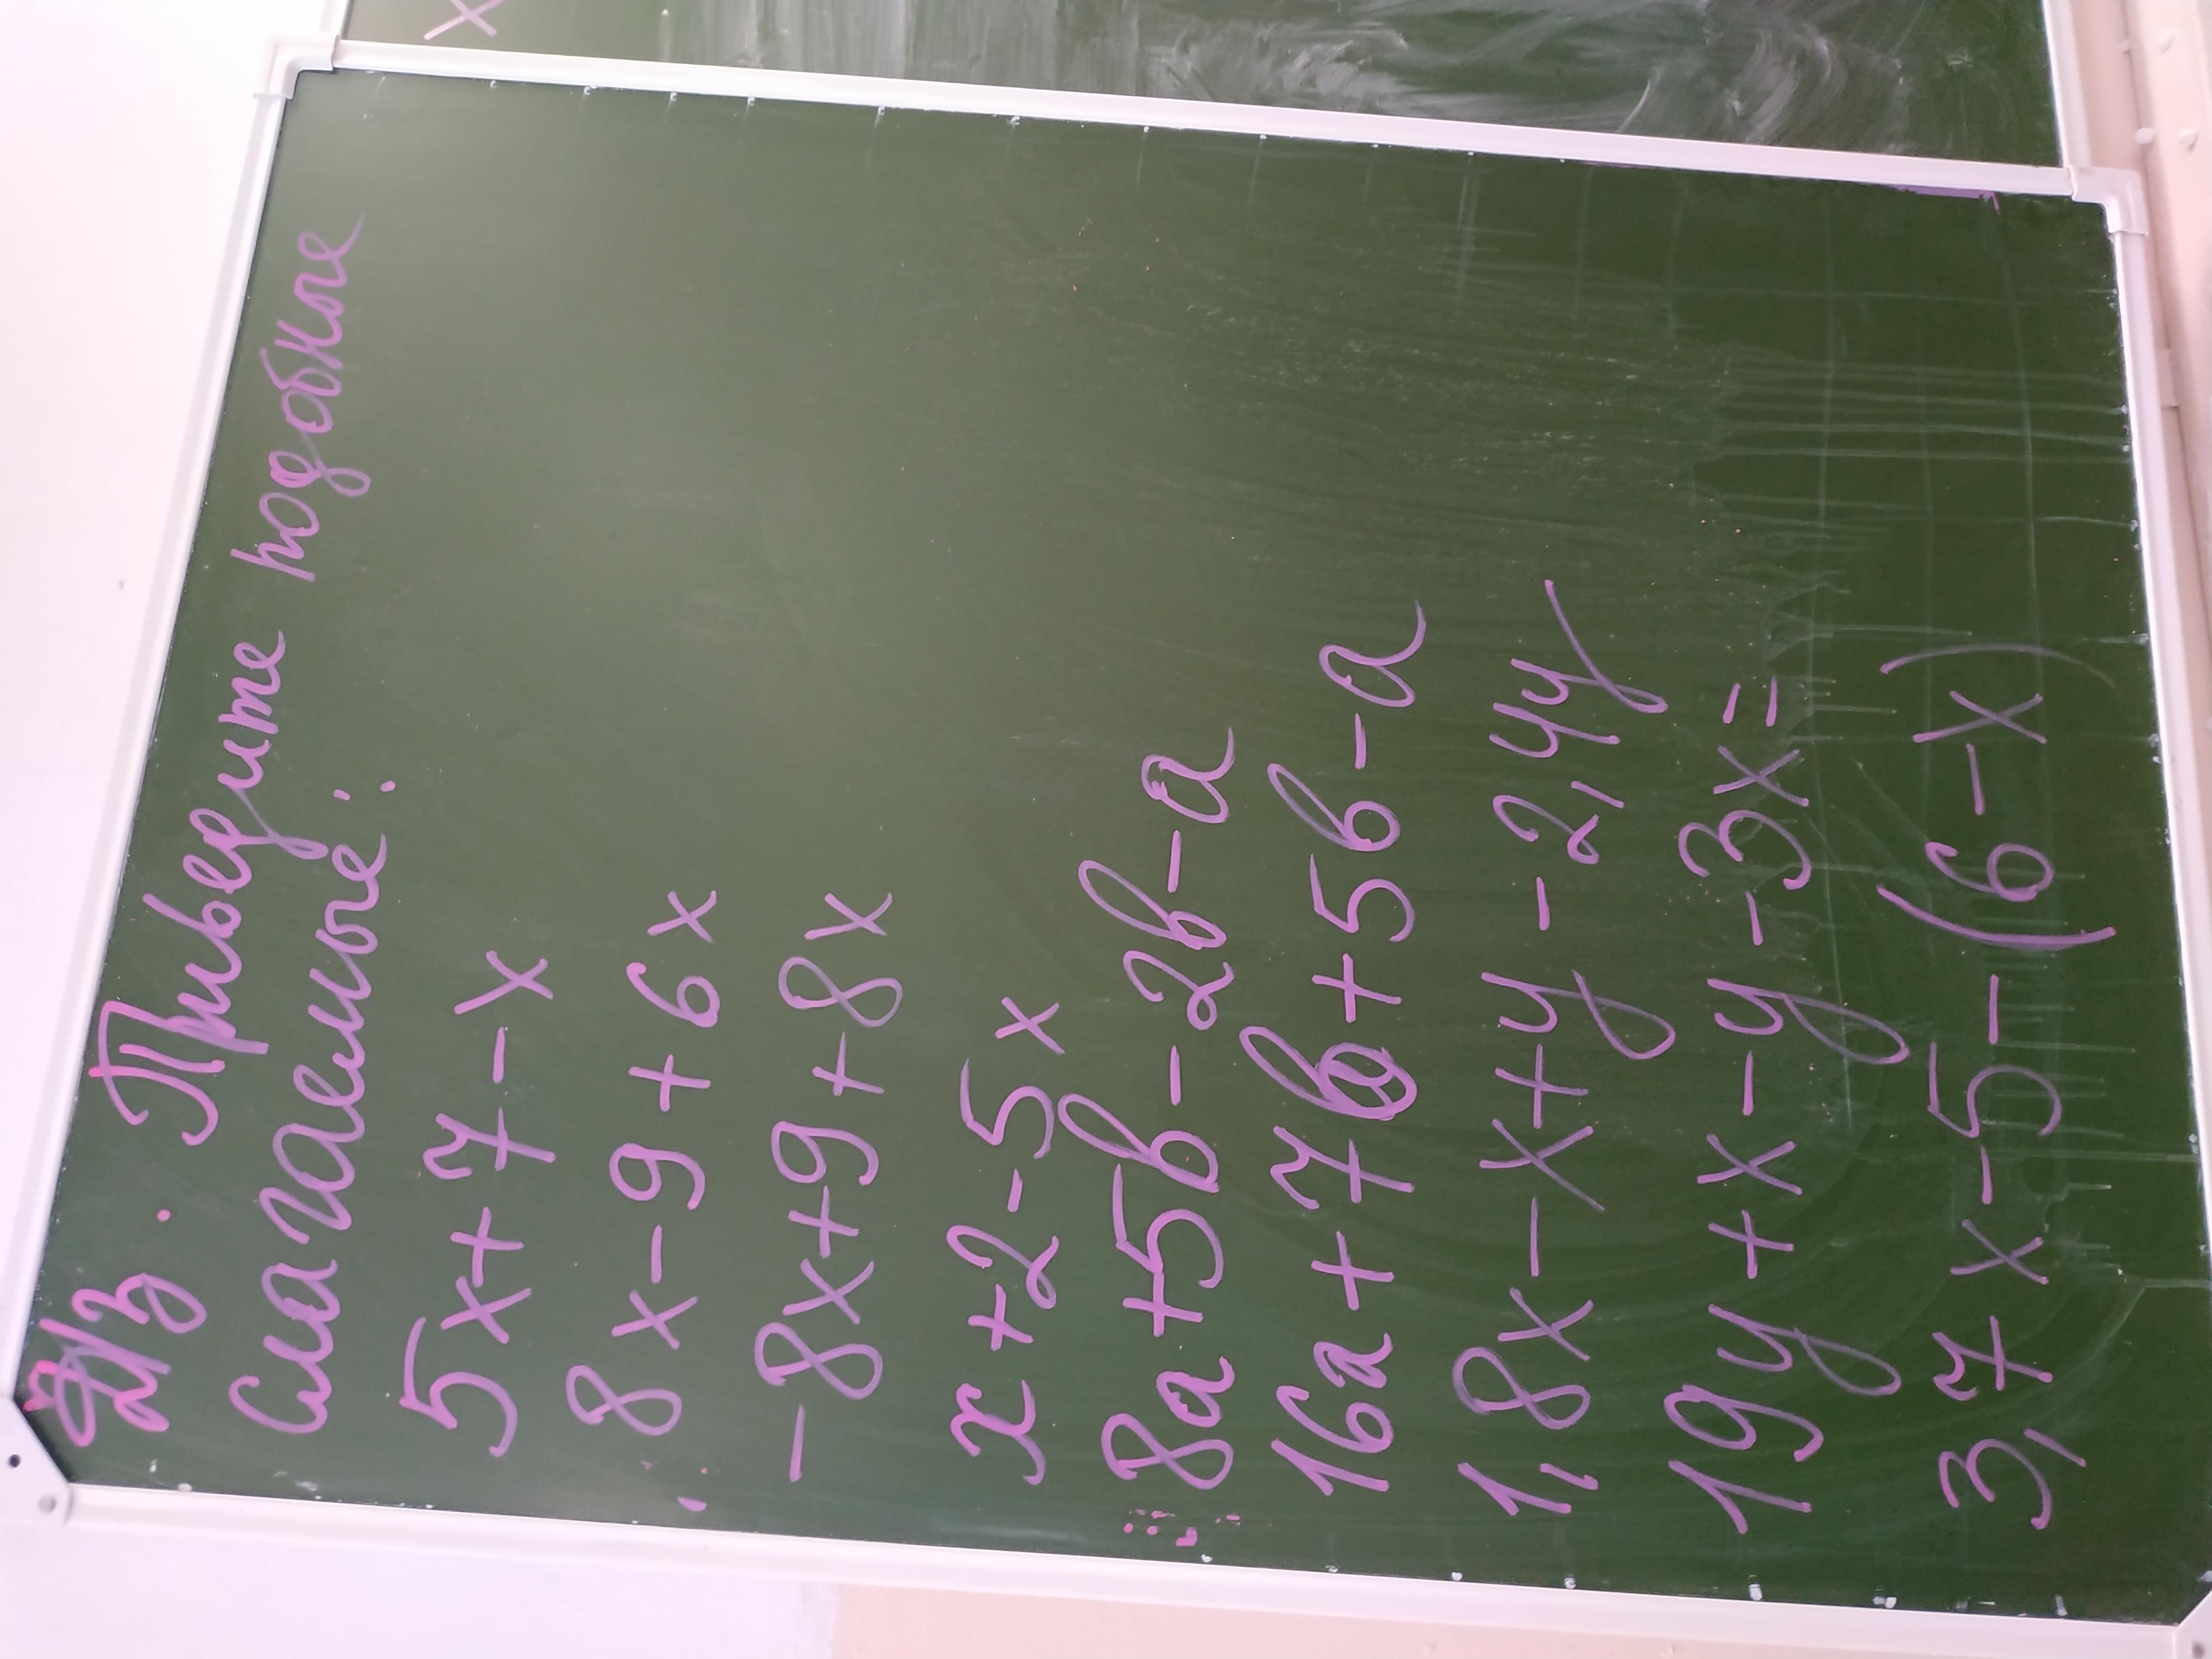 ДЗ. Приведите подобные
слагаемые:
5x+7-x
8x-9+6x
-8x+9+8x
x+2-5x
8a+5b-2b-a
16a+7b+5b-a
1,8x-x+y-2,4y
19y+x-y-3x=
3,7x-5-(6-x)
x